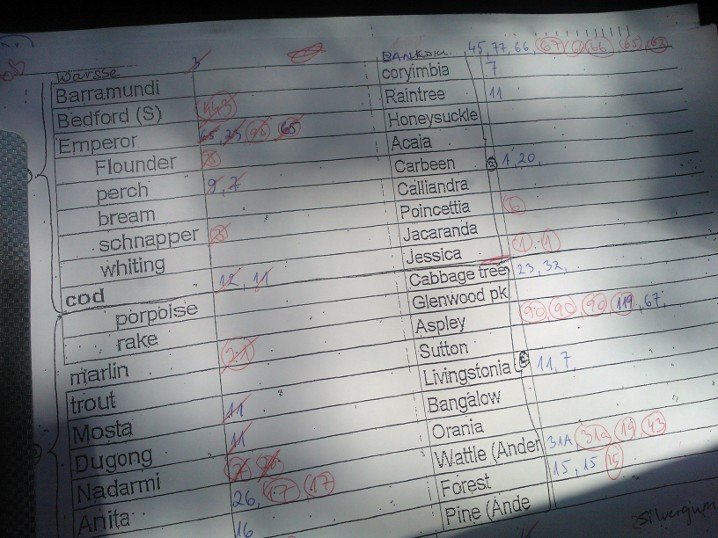 Warsse 3 BANKSIA 45, 77, 66, 67 6 66 65 62
Barramundi coryimbia 7
Bedford (S) 443 Raintree 11
Emperor 65, 25, 98 65 Honeysuckle
Flounder 8 Acaia
perch 9, 7 Carbeen 1, 20,
bream Calliandra
schnapper 3 Poincettia 6
whiting Jacaranda
cod 12, 11 Jessica 1 1
porpoise Cabbage tree 23, 32,
rake Glenwood pk
marlin 21 Aspley 90 90 90 119, 67,
trout Sutton
Mosta 11 Livingstonia 11, 7,
Dugong 11 Bangalow
Nadarmi 7 Orania
Anita 26, 17 17 Wattle (Ander 31A, 312 19 43
16 Forest 15, 15 15
Pine (Ande
Silvergum